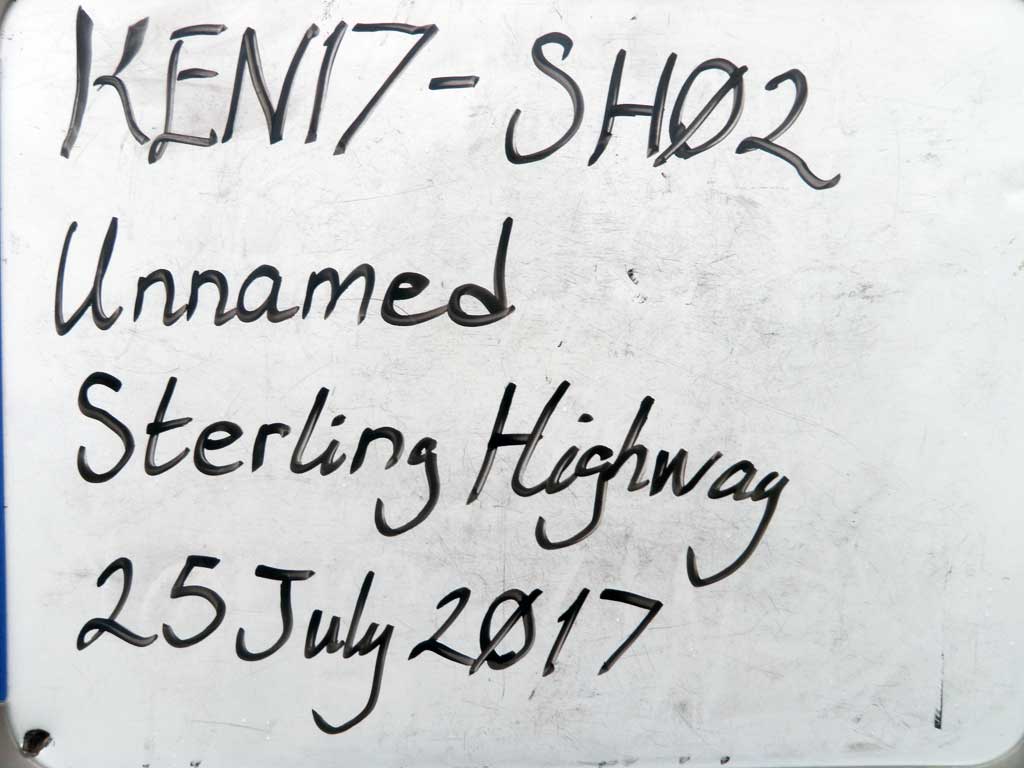 KEN17-SHØ2
Unnamed
Sterling Highway
25 July 2Ø17